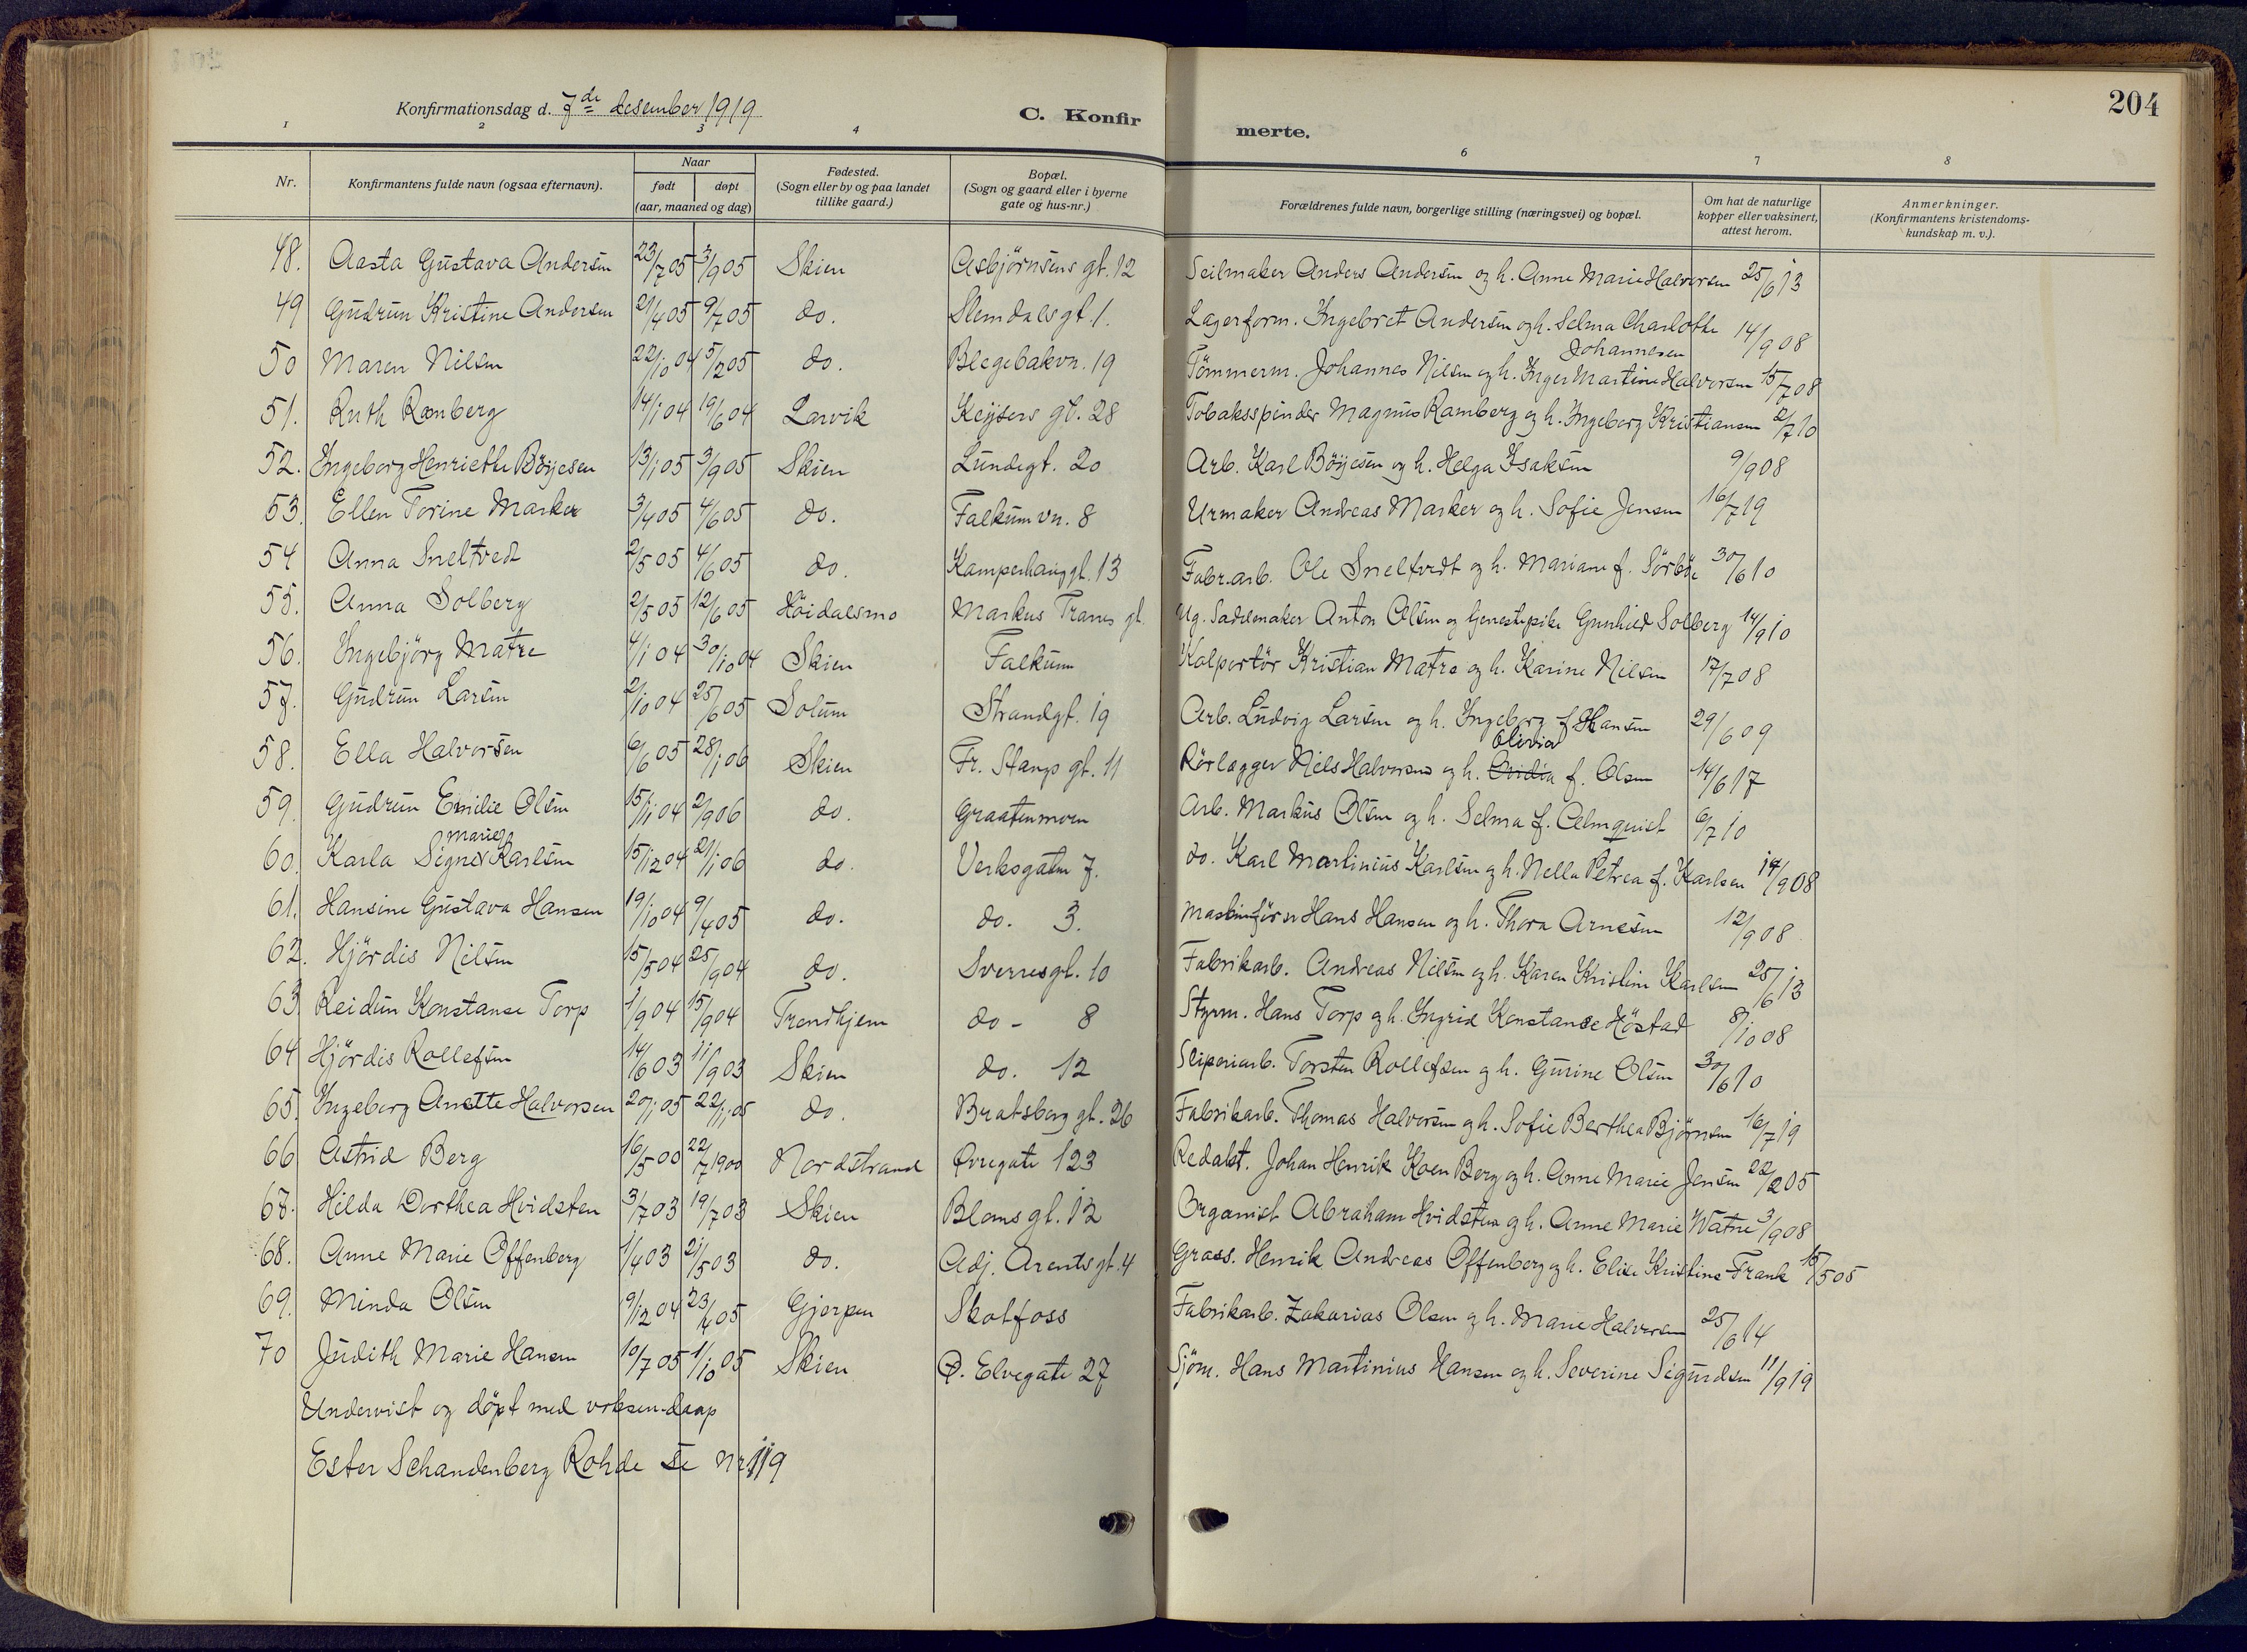 204
Konfirmationsdag d. 7de desember 1919
C. Konfirmerte.
1 2 3 4 6 7 8
Nr. Konfirmantens fulde navn (ogsaa efternavn). Naar født døpt (aar, maaned og dag) Fødested. (Sogn eller by og paa landet tillike gaard.) Bopæl. (Sogn og gaard eller i byerne gate og hus-nr.) Forældrenes fulde navn, borgerlige stilling (næringsvei) og bopæl. Om hat de naturlige kopper eller vaksinert, attest herom. Anmerkninger. (Konfirmantens kristendoms-kundskap m. v.).
48. Aasta Gustava Andersen 23/7 05 3/9 05 Skien Asbjörnsens gt. 12 Seilmaker Anders Andersen og h. Anne Marie Halvorsen 25/6 13
49 Gudrun Kristine Andersen 21/4 05 9/7 05 do. Slemdals gt. 1. Lagerform. Ingebret Andersen og h. Selma Charlotte Johannesen 14/9 08
50 Maren Nilsen 22/10 04 5/2 05 do. Blegebakvn. 19 Tömmerm. Johannes Nilsen og h. Inger Martine Halvorsen 15/7 08
51. Ruth Ramberg 14/1 04 19/6 04 Larvik Keysers gt. 28 Tobaksspinder Magnus Ramberg og h. Ingeborg Kristiansen 2/7 10
52. Ingeborg Henriette Böyesen 13/1 05 3/9 05 Skien Lundegt. 20 Arb. Karl Böyesen og h. Helga Isaksen 9/9 08
53. Ellen Torine Marker 3/4 05 4/6 05 do. Falkumvn. 8 Urmaker Andreas Marker og h. Sofie Jensen 16/7 19
54 Anna Sneltved 2/5 05 4/6 05 do. Kamperhauggt. 13 Fabr.arb. Ole Sneltvedt og h. Mariane f. Sörböe 30/6 10
55. Anna Solberg 2/5 05 12/6 05 Höidalsmo Markus Tranes gt. Ug. Sadelmaker Anton Olsen og tjenestepike Gunhild Solberg 14/9 10
56. Ingebjörg Matre 4/1 04 30/10 04 Skien Falkum Kolportör Kristian Matre og h. Karine Nilsen 17/7 08
57. Gudrun Larsen 2/10 04 25/6 05 Solum Strandgt. 19 Arb. Ludvig Larsen og h. Ingeborg f. Hansen 29/6 09
58. Ella Halvorsen 6/6 05 28/1 06 Skien Fr. Stangs gt. 11 Rörlægger Nils Halvorsen og h. Olivia f. Olsen 14/6 17
59. Gudrun Emilie Olsen 15/11 04 2/9 06 do. Graatenmoen Arb. Markus Olsen og h. Selma f. Almquist 6/7 10
60. Karla Signe Marie Karlsen 15/12 04 21/1 06 do. Verksgaten 7. do. Karl Martinius Karlsen og h. Nella Petrea f. Karlsen 14/9 08
61. Hansine Gustava Hansen 19/10 04 9/4 05 do. do. 3. Maskinförer Hans Hansen og h. Thora Arnesen 12/9 08
62. Hjördis Nilsen 15/5 04 25/9 04 do. Sverresgt. 10 Fabrikarb. Andreas Nilsen og h. Karen Kristine Karlsen 25/6 13
63. Reidun Konstanse Torp 1/9 04 15/9 04 Trondhjem do - 8 Styrm. Hans Torp og h. Ingrid Konstanse Höstad 8/10 08
64 Hjördis Rollefsen 14/6 03 11/9 03 Skien do. 12 Sliperiarb. Torsten Rollefsen og h. Gurine Olsen 30/6 10
65. Ingeborg Anette Halvorsen 20/1 05 22/11 05 do. Bratsberg gt. 26 Fabrikarb. Thomas Halvorsen og h. Sofie Berthea Björnsen 16/7 19
66 Astrid Berg 16/5 00 22/7 1900 Nordstrand Øvregate 123 Redakt. Johan Henrik Koen Berg og h. Anne Marie Jensen 22/2 05
67. Hilda Dorthea Hvidsten 3/7 03 19/7 03 Skien Bloms gt. 12 Organist Abraham Hvidsten og h. Anne Marie Watne 3/9 08
68. Anne Marie Offenberg 1/4 03 21/5 03 do. Adj. Arentsgt. 4 Gross. Henrik Andreas Offenberg og h. Elise Kristine Frank 15/5 05
69. Minda Olsen 9/12 04 23/4 05 Gjerpen Skotfoss Fabrikarb. Zakarias Olsen og h. Marie Halvorsen 25/6 14
70 Judith Marie Hansen 10/7 05 1/10 05 Skien Ø. Elvegate 27 Sjöm. Hans Martinius Hansen og h. Severine Sigurdsen 11/9 19
Undervist og döpt med voksen-daap
Ester Schandenberg Rohde se nr 119